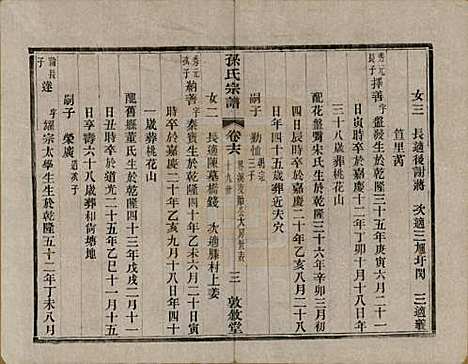 女三 長適後謝蔣 次適三旭圩閔 三適叢
笪里芮
秀元長子 擇善 字盤發生於乾隆三十五年庚寅六月二十一日
時卒於嘉慶十二年丁卯十月十八日年
三十八歲葬桃花山
配花盤腎宋氏生於乾隆三十六年辛卯三月初
四日辰時卒於嘉慶二十年乙亥八月二十八
日年四十五歲葬近天穴
嗣子 勤仙
孫氏宗譜 卷六 十九世 三 敦敘堂
女二 長適陳墓橋錢 次適滕村上姜
秀元次子 納善 字 生於乾隆四十年乙未六月二十日寅
時卒於嘉慶二十年乙亥九月十八日年四十
一歲葬桃花山
配舊縣董氏生於乾隆四十三年戊戌二月一
日丑時卒於道光二十五年乙巳十一月十五
日享年六十八歲與夫和尚塘地
嗣子 榮廣
論長子 遂 字耀宗太學生生於乾隆五十二年丁未八月